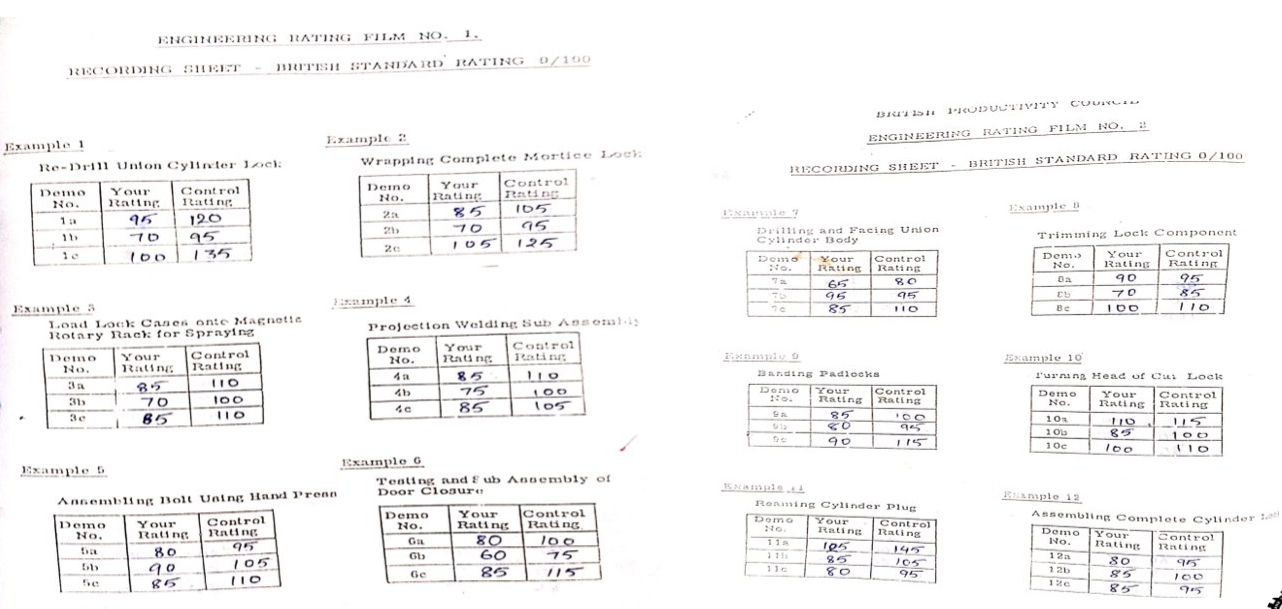 ENGINEERING RATING FILM NO. 1.
RECORDING SHEET - BRITISH STANDARD RATING 0/100
Example 1
Re-Drill Union Cylinder Lock
Demo No. Your Rating Control Rating
1a 95 120
1b 70 95
1c 100 135
Example 2
Wrapping Complete Mortice Lock
Demo No. Your Rating Control Rating
2a 85 105
2b 70 95
2c 105 125
Example 3
Load Lock Cases onto Magnetic
Rotary Rack for Spraying
Demo No. Your Rating Control Rating
3a 85 110
3b 70 100
3c 85 110
Example 4
Projection Welding Sub Assembly
Demo No. Your Rating Control Rating
4a 85 110
4b 75 100
4c 85 105
Example 5
Assembling Bolt Using Hand Press
Demo No. Your Rating Control Rating
5a 80 95
5b 90 105
5c 85 110
Example 6
Testing and Sub Assembly of
Door Closure
Demo No. Your Rating Control Rating
6a 80 100
6b 60 75
6c 85 115
BRITISH PRODUCTIVITY COUNCIL
ENGINEERING RATING FILM NO. 2
RECORDING SHEET - BRITISH STANDARD RATING 0/100
Example 7
Drilling and Facing Union
Cylinder Body
Demo No. Your Rating Control Rating
7a 65 80
7b 95 95
7c 85 110
Example 8
Trimming Lock Component
Demo No. Your Rating Control Rating
8a 90 95
8b 70 85
8c 100 110
Example 9
Banding Padlocks
Demo No. Your Rating Control Rating
9a 85 100
9b 80 95
9c 90 115
Example 10
Turning Head of Cut Lock
Demo No. Your Rating Control Rating
10a 110 115
10b 85 100
10c 100 110
Example 11
Reaming Cylinder Plug
Demo No. Your Rating Control Rating
11a 125 145
11b 85 105
11c 80 95
Example 12
Assembling Complete Cylinder Lock
Demo No. Your Rating Control Rating
12a 80 95
12b 85 100
12c 85 95